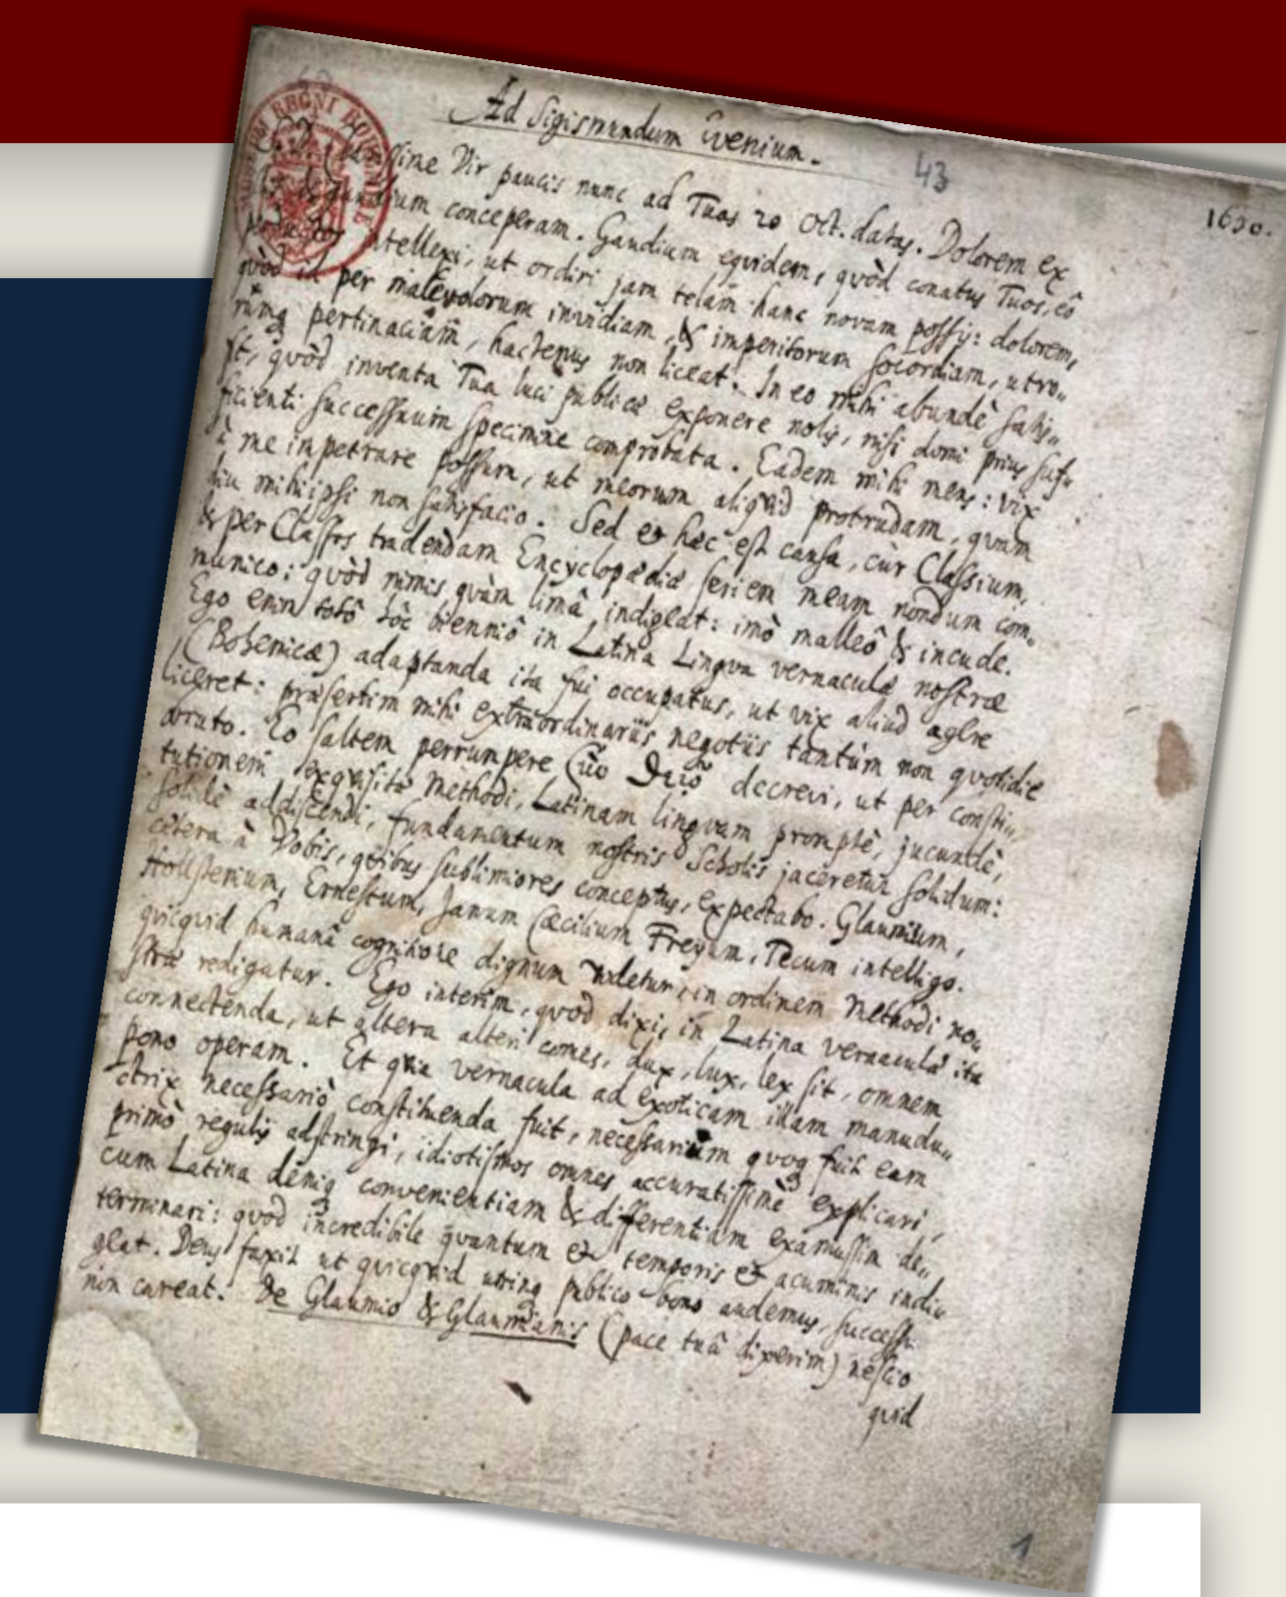 Ad Sigismundum Evenium.
43
1630.
Vir paucis nunc ad Tuas 20 Oct. datas. Dolorem ex
conceperam. Gaudium equidem, quòd conatus Tuos, eô
intellexi, ut ordiri jam telam hanc novam possis: dolorem,
quòd id per malevolorum invidiam, & imperitorum socordiam, utro„
rumq pertinaciam, hactenus non liceat. In eo mihi abundè satis„
quòd inventa Tua luci publicæ exponere nolis, nisi domi prius suf„
ficienti successuum specimine comprobata. Eadem mihi mens: vix
à me inpetrare possum, ut meorum aliqvid protrudam, quam
diu mihi ipsi non satisfacio. Sed et hæc est causa, cùr Classium,
& per Classes tradendam Encyclopædiæ seriem meam nondum com„
munico: quòd nimis quàm limâ indigeat: imò malleô & incude.
Ego enim totô hôc bienniô in Latina Lingva vernaculæ nostræ
(Bohemicæ) adaptanda ita fui occupatus, ut vix aliud agere
liceret: præsertim mihi extraordinariis negotiis tantùm non quotidie
obruto. Eo saltem perrumpere decrevi, ut per consti„
tutionem exqvisitæ Methodi, Latinam lingvam promptè, jucundè,
solidè addiscendi, fundamentum nostris Scholis jaceretur solidum:
cêtera à Vobis, quibus sublimiores conceptus, expectabo. Glaumium,
Ernestum, Janum Cæcilium Freyum, Tecum intelligo.
quicquid humanâ cognitione dignum videtur, in ordinem Methodi no„
stræ redigatur. Ego interim, quod dixi, in Latina vernaculæ ita
connectenda, ut altera alteri comes, dux, lux, lex sit, omnem
pono operam. Et qvia vernacula ad exoticam illam manudu„
ctrix necessariò constituenda fuit, necessarium quoq fuit eam
primò regulis adstringi, idiotismos omnes accuratissimè explicari,
cum Latina deniq convenientiam & differentiam examussim de„
terminari: quod incredibile quantum et temporis et acuminis indi„
geat. Deus faxit ut quicqvid utrinq publico bono audemus, successu
non careat. De Glaumio & Glaumianis (pace tuâ dixerim) nescio
quid
1